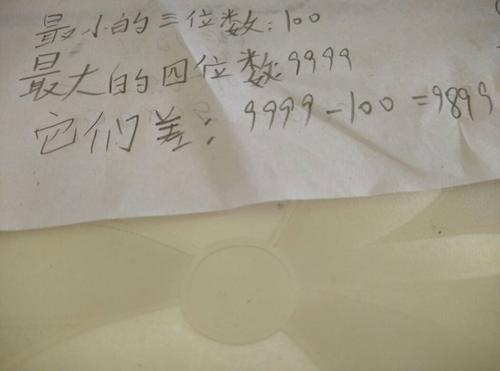 最小的三位数:100
最大的四位数:9999
它们差:9999-100=9899